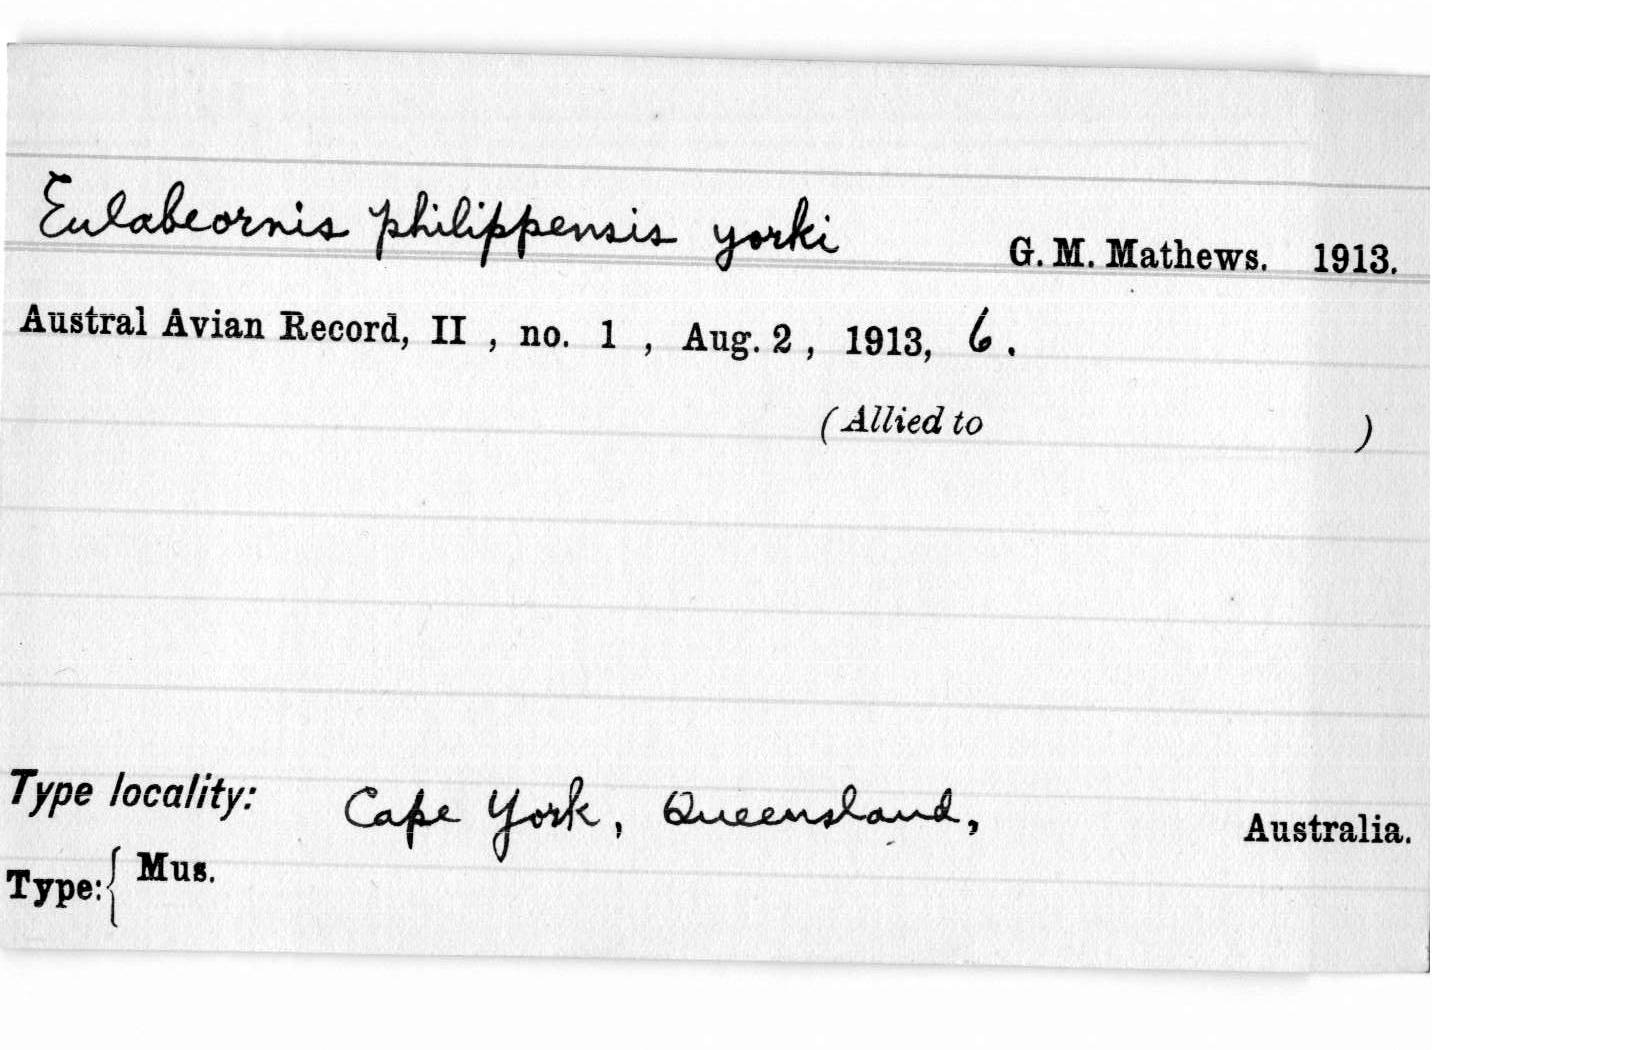 Eulabeornis philippensis yorki G. M. Mathews. 1913.
Austral Avian Record, II , no. 1 , Aug. 2 , 1913, 6 .
(Allied to )
Type locality: Cape York, Queensland, Australia.
Type:{ Mus.